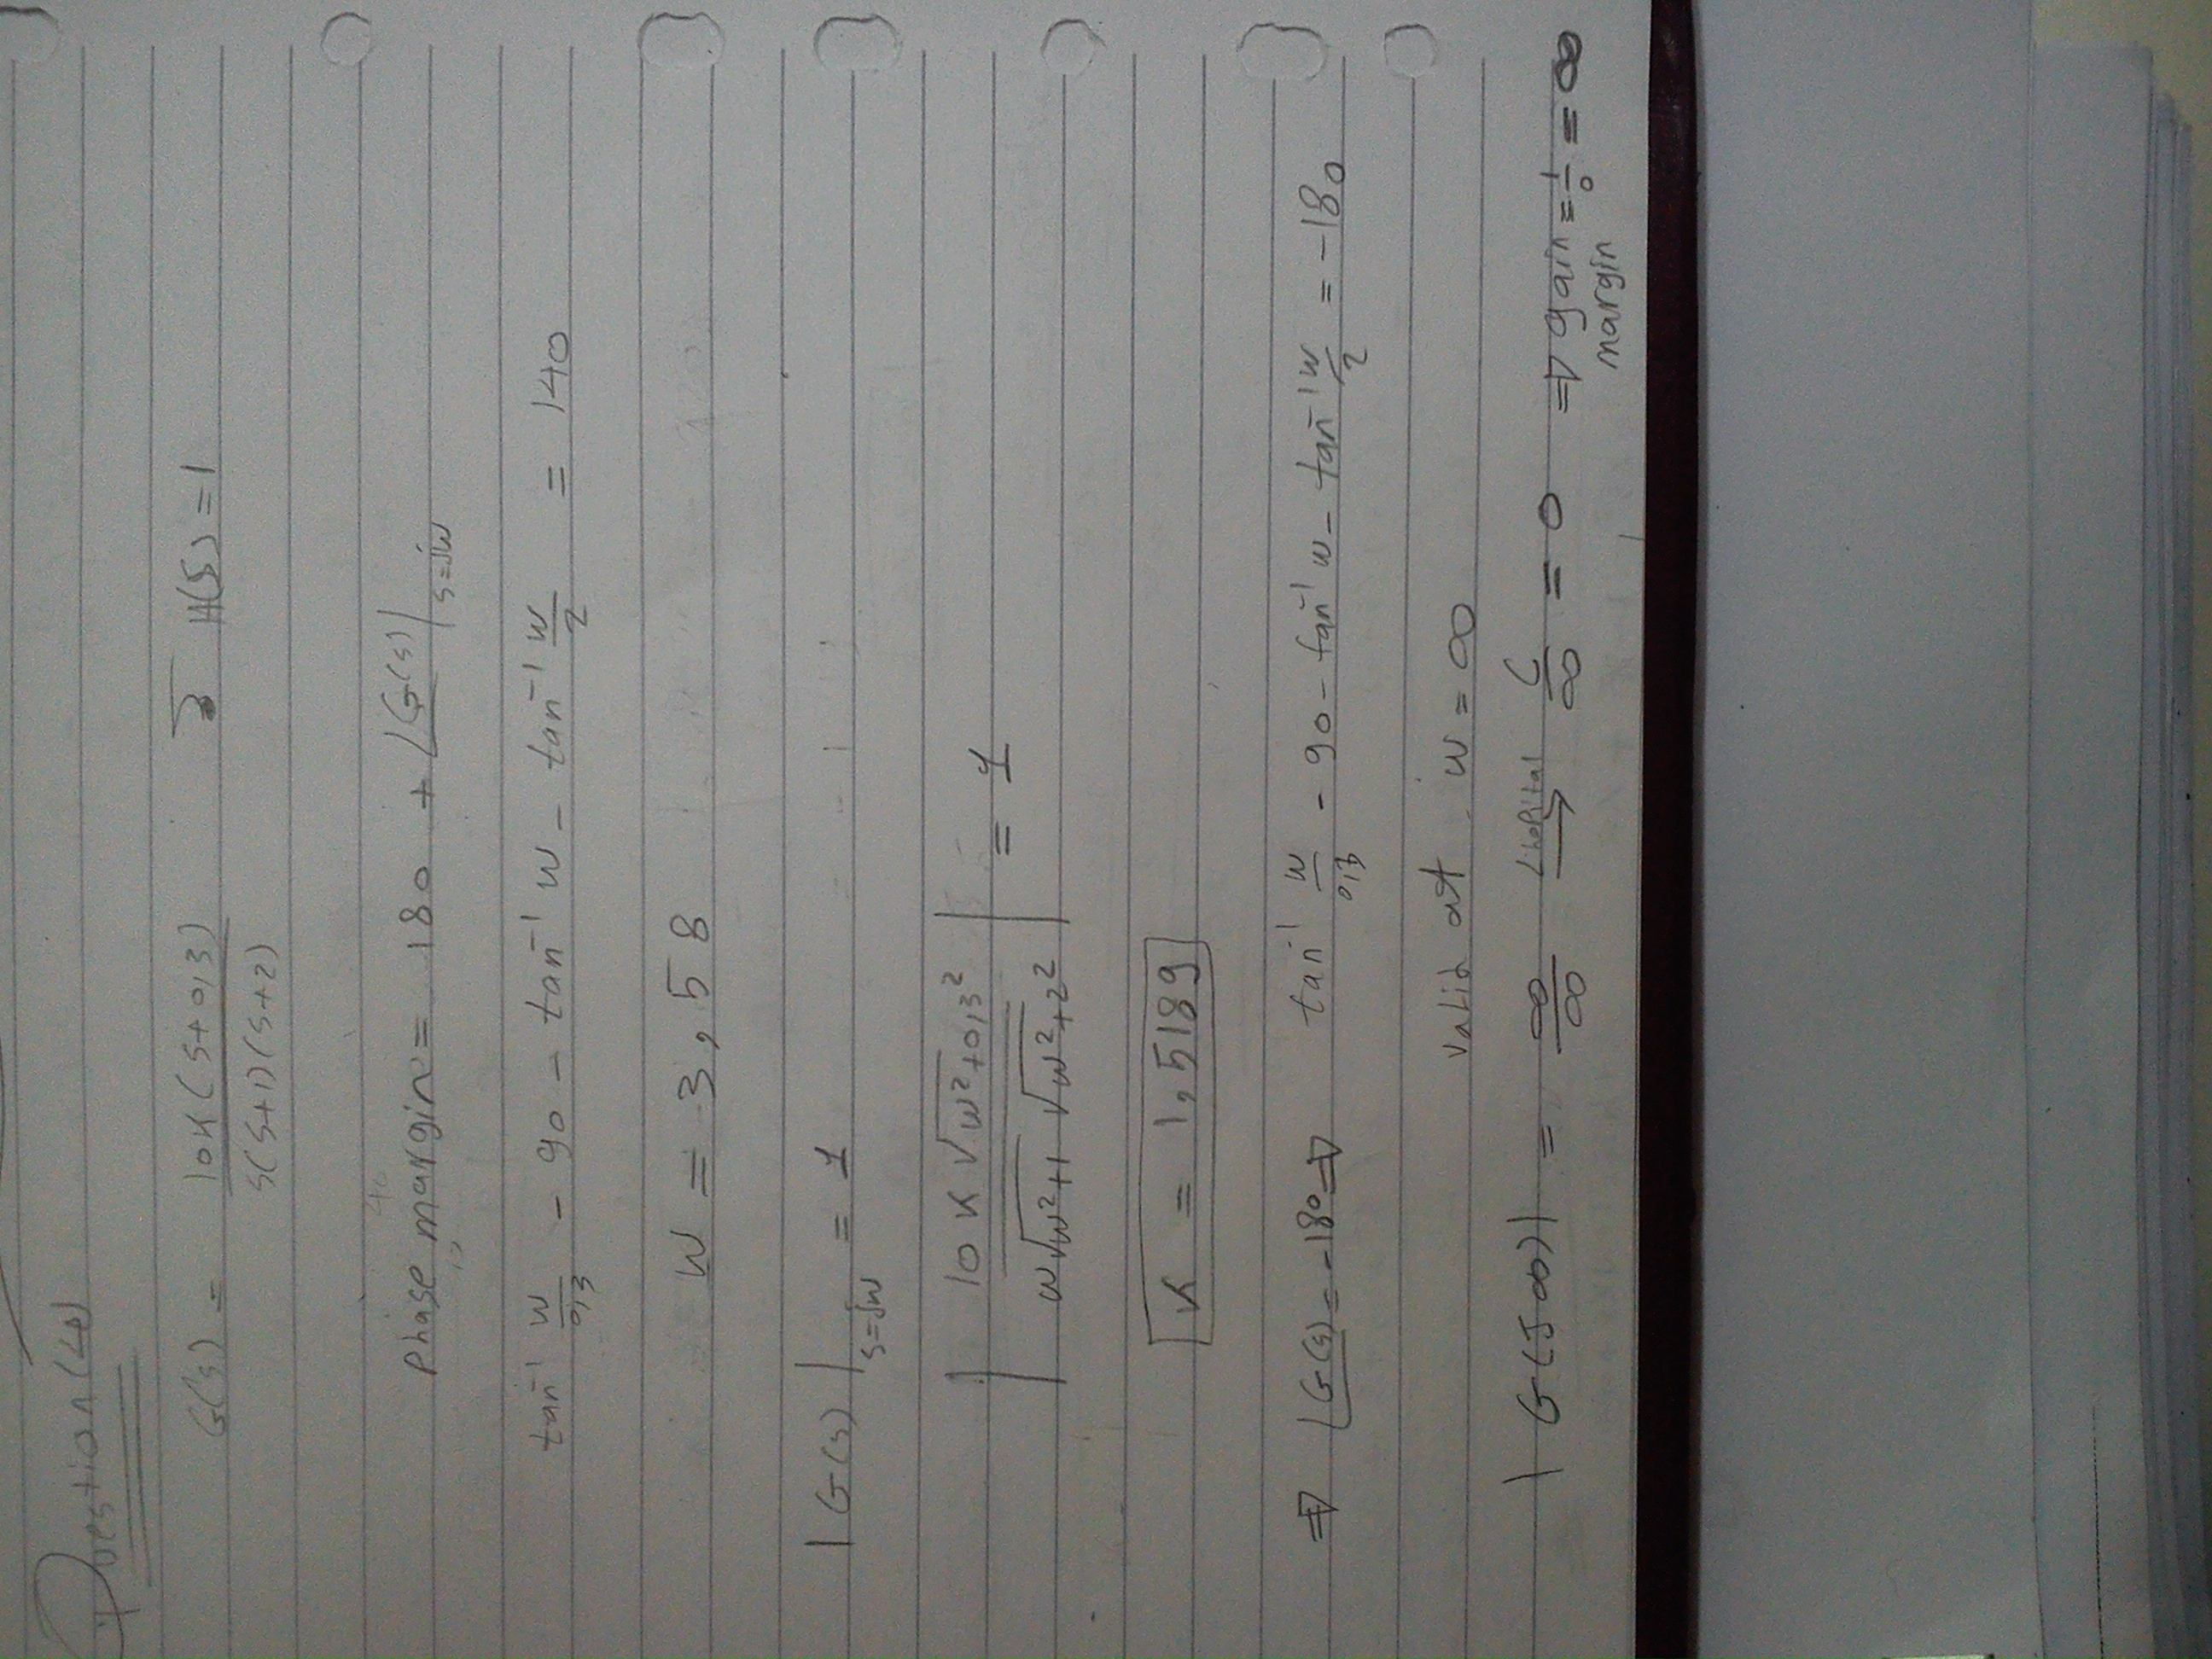 Question (4)
G(s) = 10K(s+0,3) / s(s+1)(s+2) , H(s) = 1
40
Phase margin = 180 + ∠G(s)|s=jw
tan⁻¹ w/0,3 - 90 - tan⁻¹ w - tan⁻¹ w/2 = 140
w = 3,58
|G(s)|s=jw = 1
| 10 K √w²+0,3² / w√w²+1 √w²+2² | = 1
K = 1,5189
⇒ ∠G(s) = -180 ⇒ tan⁻¹ w/0,3 - 90 - tan⁻¹ w - tan⁻¹ w/2 = -180
valid at w = ∞
|G(J∞)| = ∞/∞ Lhopital → C/∞ = 0 ⇒ gain margin = 1/0 = ∞